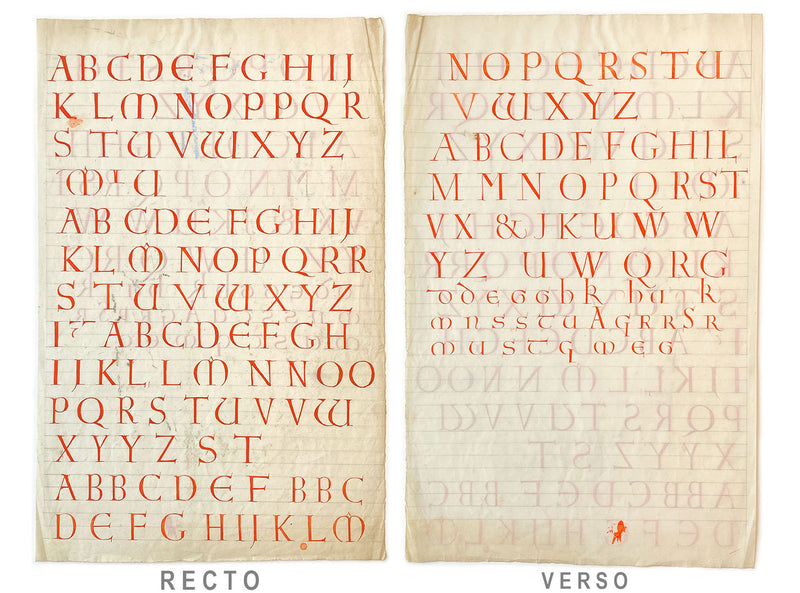 A B C D E F G H I J
K L M N O P P Q R
S T U V W X Y Z
M U
A B C D E F G H I J
K L M N O P Q R R
S T U V W X Y Z
A B C D E F G H
I I J K L L M N N O O
P Q R S T U V V W
X Y Y Z S T
A B B C D E F B B C
D E F G H I J K L M
RECTO
N O P Q R S T U
V W X Y Z
A B C D E F G H I L
M M N O P Q R S T
V X & J K U W W
Y Z U W Q R G
d d e g g h k h u t k
m n s s t u A g r r S r
m u s t q w e g
VERSO